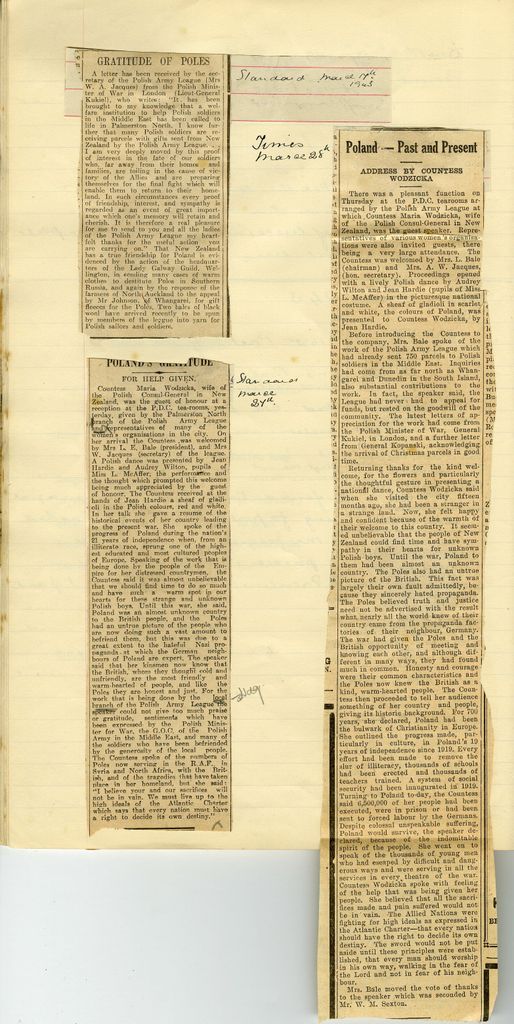 GRATITUDE OF POLES
A letter has been received by the sec-
retary of the Polish Army League (Mrs
W. A. Jacques) from the Polish Minis-
ter of War in London (Lieut-General
Kukiel), who writes: "It has been
brought to my knowledge that a wel-
fare institution to help Polish soldiers
in the Middle East has been called to
life in Palmerston North. I know fur-
ther that many Polish soldiers are re-
ceiving parcels with gifts sent from New
Zealand by the Polish Army League.
I am very deeply moved by this proof
of interest in the fate of our soldiers
who, far away from their homes and
families, are toiling in the cause of vic-
tory of the Allies and are preparing
themselves for the final fight which will
enable them to return to their home-
land. In such circumstances every proof
of friendship, interest, and sympathy is
regarded as an event of great import-
ance which one's memory will retain and
cherish. It is therefore a real pleasure
for me to send to you and all the ladies
of the Polish Army League my heart-
felt thanks for the useful action you
are carrying on." That New Zealand
has a true friendship for Poland is evi-
denced by the action of the headquar-
ters of the Lady Galway Guild, Wel-
lington, in sending many cases of warm
clothes to destitute Poles in Southern
Russia, and again by the response of the
farmers of North Auckland to the appeal
by Mr Johnson, of Whangarei, for gift
fleeces for the Poles. Two bales of black
wool have arrived recently to be spun
by members of the league into yarn for
Polish sailors and soldiers.
Standard March 17th
1943
Times
March 28th
POLAND'S GRATITUDE
FOR HELP GIVEN.
Countess Maria Wodzicka, wife of
the Polish Consul-General in New
Zealand, was the guest of honour at a
reception at the P.D.C. tea-rooms, yes-
terday, given by the Palmerston North
branch of the Polish Army League
and Representatives of many of the
women's organisations in the city. On
her arrival the Countess was welcomed
by Mrs L. E. Bale (president), and Mrs
W. Jacques (secretary) of the league.
A Polish dance was presented by Jean
Hardie and Audrey Wilton, pupils of
Miss L. McAffer, the performance and
the thought which prompted this welcome
being much appreciated by the guest
of honour. The Countess received at the
hands of Jean Hardie a sheaf of gladi-
oli in the Polish colours, red and white.
In her talk she gave a resume of the
historical events of her country leading
to the present war. She spoke of the
progress of Poland during the nation's
21 years of independence when, from an
illiterate race, sprung one of the high-
est educated and most cultured peoples
of Europe. Speaking of the work that is
being done by the people of the Em-
pire for her distressed countrymen, the
Countess said it was almost unbelievable
that we should find time to do so much
and have such a warm spot in our
hearts for these strange and unknown
Polish boys. Until this war, she said,
Poland was an almost unknown country
to the British people, and the Poles
had an untrue picture of the people who
are now doing such a vast amount to
befriend them, but this was due to a
great extent to the hateful Nazi pro-
paganda at which the German neigh-
bours of Poland are expert. The speaker
said that her kinsmen now know that
the British, whom they thought cold and
unfriendly, are the most friendly and
warm-hearted of people, and like the
Poles they are honest and just. For the
work that is being done by the local
branch of the Polish Army League the
speaker could not give too much praise
or gratitude, sentiments which have
been expressed by the Polish Minis-
ter for War, the G.O.C. of the Polish
Army in the Middle East, and many of
the soldiers who have been befriended
by the generosity of the local people.
The Countess spoke of the numbers of
Poles now serving in the R.A.F., in
Syria and North Africa, with the Brit-
ish, and of the tragedies that have taken
place in her homeland, but she said:
"I believe your and our sacrifices will
not be in vain. We must live up to the
high ideals of the Atlantic Charter
which says that every nation must have
a right to decide its own destiny."
Standard
March
27th
Poland—Past and Present
ADDRESS BY COUNTESS
WODZICKA
There was a pleasant function on
Thursday at the P.D.C. tearooms ar-
ranged by the Polish Army League at
which Countess Maria Wodzicka, wife
of the Polish Consul-General in New
Zealand, was the guest speaker. Repre-
sentatives of various women's organisa-
tions were also invited guests, there
being a very large attendance. The
Countess was welcomed by Mrs. L. Bale
(chairman) and Mrs. A. W. Jacques,
(hon. secretary). Proceedings opened
with a lively Polish dance by Audrey
Wilton and Jean Hardie (pupils of Miss
L. McAffer) in the picturesque national
costume. A sheaf of gladioli in scarlet
and white, the colours of Poland, was
presented to Countess Wodzicka by
Jean Hardie.
Before introducing the Countess to
the company, Mrs. Bale spoke of the
work of the Polish Army League which
had already sent 750 parcels to Polish
soldiers in the Middle East. Inquiries
had come from as far north as Whan-
garei and Dunedin in the South Island,
also substantial contributions to the
work. In fact, the speaker said, the
League had never had to appeal for
funds, but rested on the goodwill of the
community. The latest letters of ap-
preciation for the work had come from
the Polish Minister of War, General
Kukiel, in London, and a further letter
from General Kopanski, acknowledging
the arrival of Christmas parcels in good
time.
Returning thanks for the kind wel-
come, for the flowers and particularly
the thoughtful gesture in presenting a
national dance, Countess Wodzicka said
when she visited the city fifteen
months ago, she had been a stranger in
a strange land. Now, she felt happy
and confident because of the warmth of
their welcome to this country. It seem-
ed unbelievable that the people of New
Zealand could find time and have sym-
pathy in their hearts for unknown
Polish boys. Until the war, Poland to
them had been almost an unknown
country. The Poles also had an untrue
picture of the British. This fact was
largely their own fault admittedly, be-
cause they sincerely hated propaganda.
The Poles believed truth and justice
need not be advertised with the result
what nearly all the world knew of their
country came from the propaganda fac-
tories of their neighbour, Germany.
The war had given the Poles and the
British opportunity of meeting and
knowing each other, and although dif-
ferent in many ways, they had found
much in common. Honesty and courage
were their common characteristics and
the Poles now knew the British as a
kind, warm-hearted people. The Coun-
tess then proceeded to tell her audience
something of her country and people,
giving its historic background. For 700
years, she declared, Poland had been
the bulwark of Christianity in Europe.
She outlined the progress made, par-
ticularly in culture, in Poland's 19
years of independence since 1919. Every
effort had been made to remove the
slur of illiteracy, thousands of schools
had been erected and thousands of
teachers trained. A system of social
security had been inaugurated in 1919.
Turning to Poland to-day, the Countess
said 6,500,000 of her people had been
executed, were in prison or had been
sent to forced labour by the Germans.
Despite colossal unspeakable suffering,
Poland would survive, the speaker de-
clared, because of the indomitable
spirit of the people. She went on to
speak of the thousands of young men
who had escaped by difficult and dang-
erous ways and were serving in all the
services in every theatre of the war.
Countess Wodzicka spoke with feeling
of the help that was being given her
people. She believed that all the sacri-
fices made and pain suffered would not
be in vain. The Allied Nations were
fighting for high ideals as expressed in
the Atlantic Charter—that every nation
should have the right to decide its own
destiny. The sword would not be put
aside until these principles were estab-
lished, that every man should worship
in his own way, walking in the fear of
the Lord and not in fear of his neigh-
bour.
Mrs. Bale moved the vote of thanks
to the speaker which was seconded by
Mr. W. M. Sexton.